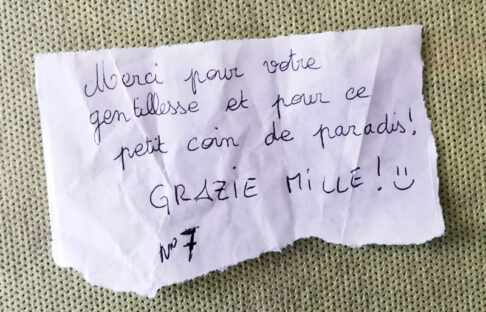 Merci pour votre
gentillesse et pour ce
petit coin de paradis!
GRAZIE MILLE! :)
N° 7